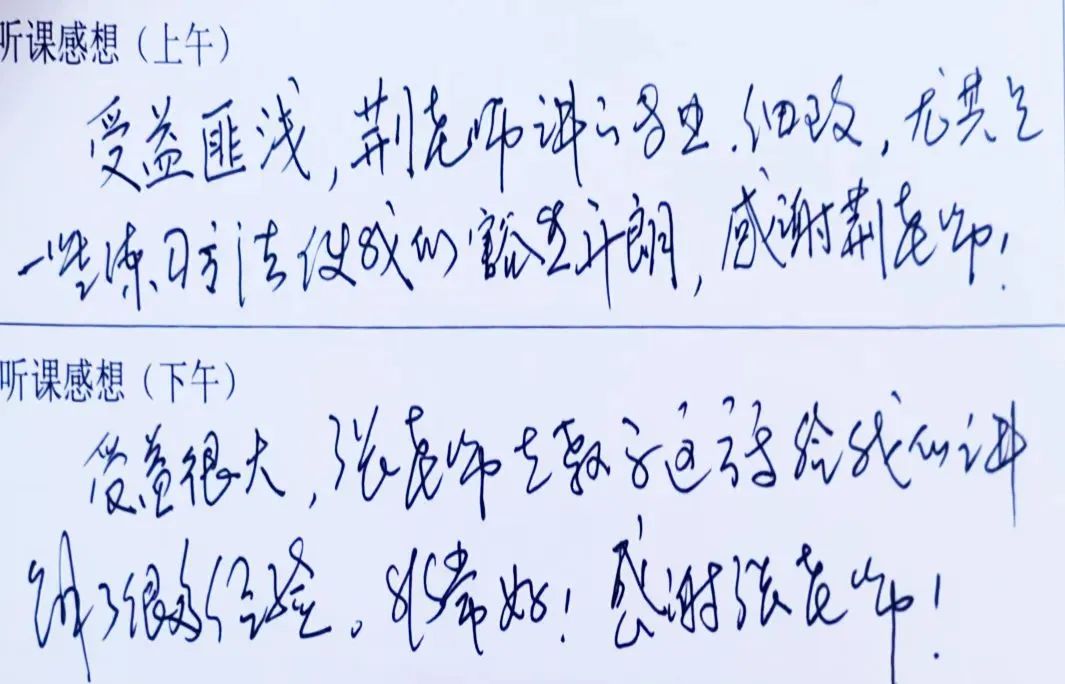 听课感想（上午）
受益匪浅，荆老师讲的很细致，尤其是
一些练习方法使我们豁然开朗，感谢荆老师！
听课感想（下午）
受益很大，张老师从教学这方给我们讲
解了很多经验。非常好！感谢张老师！